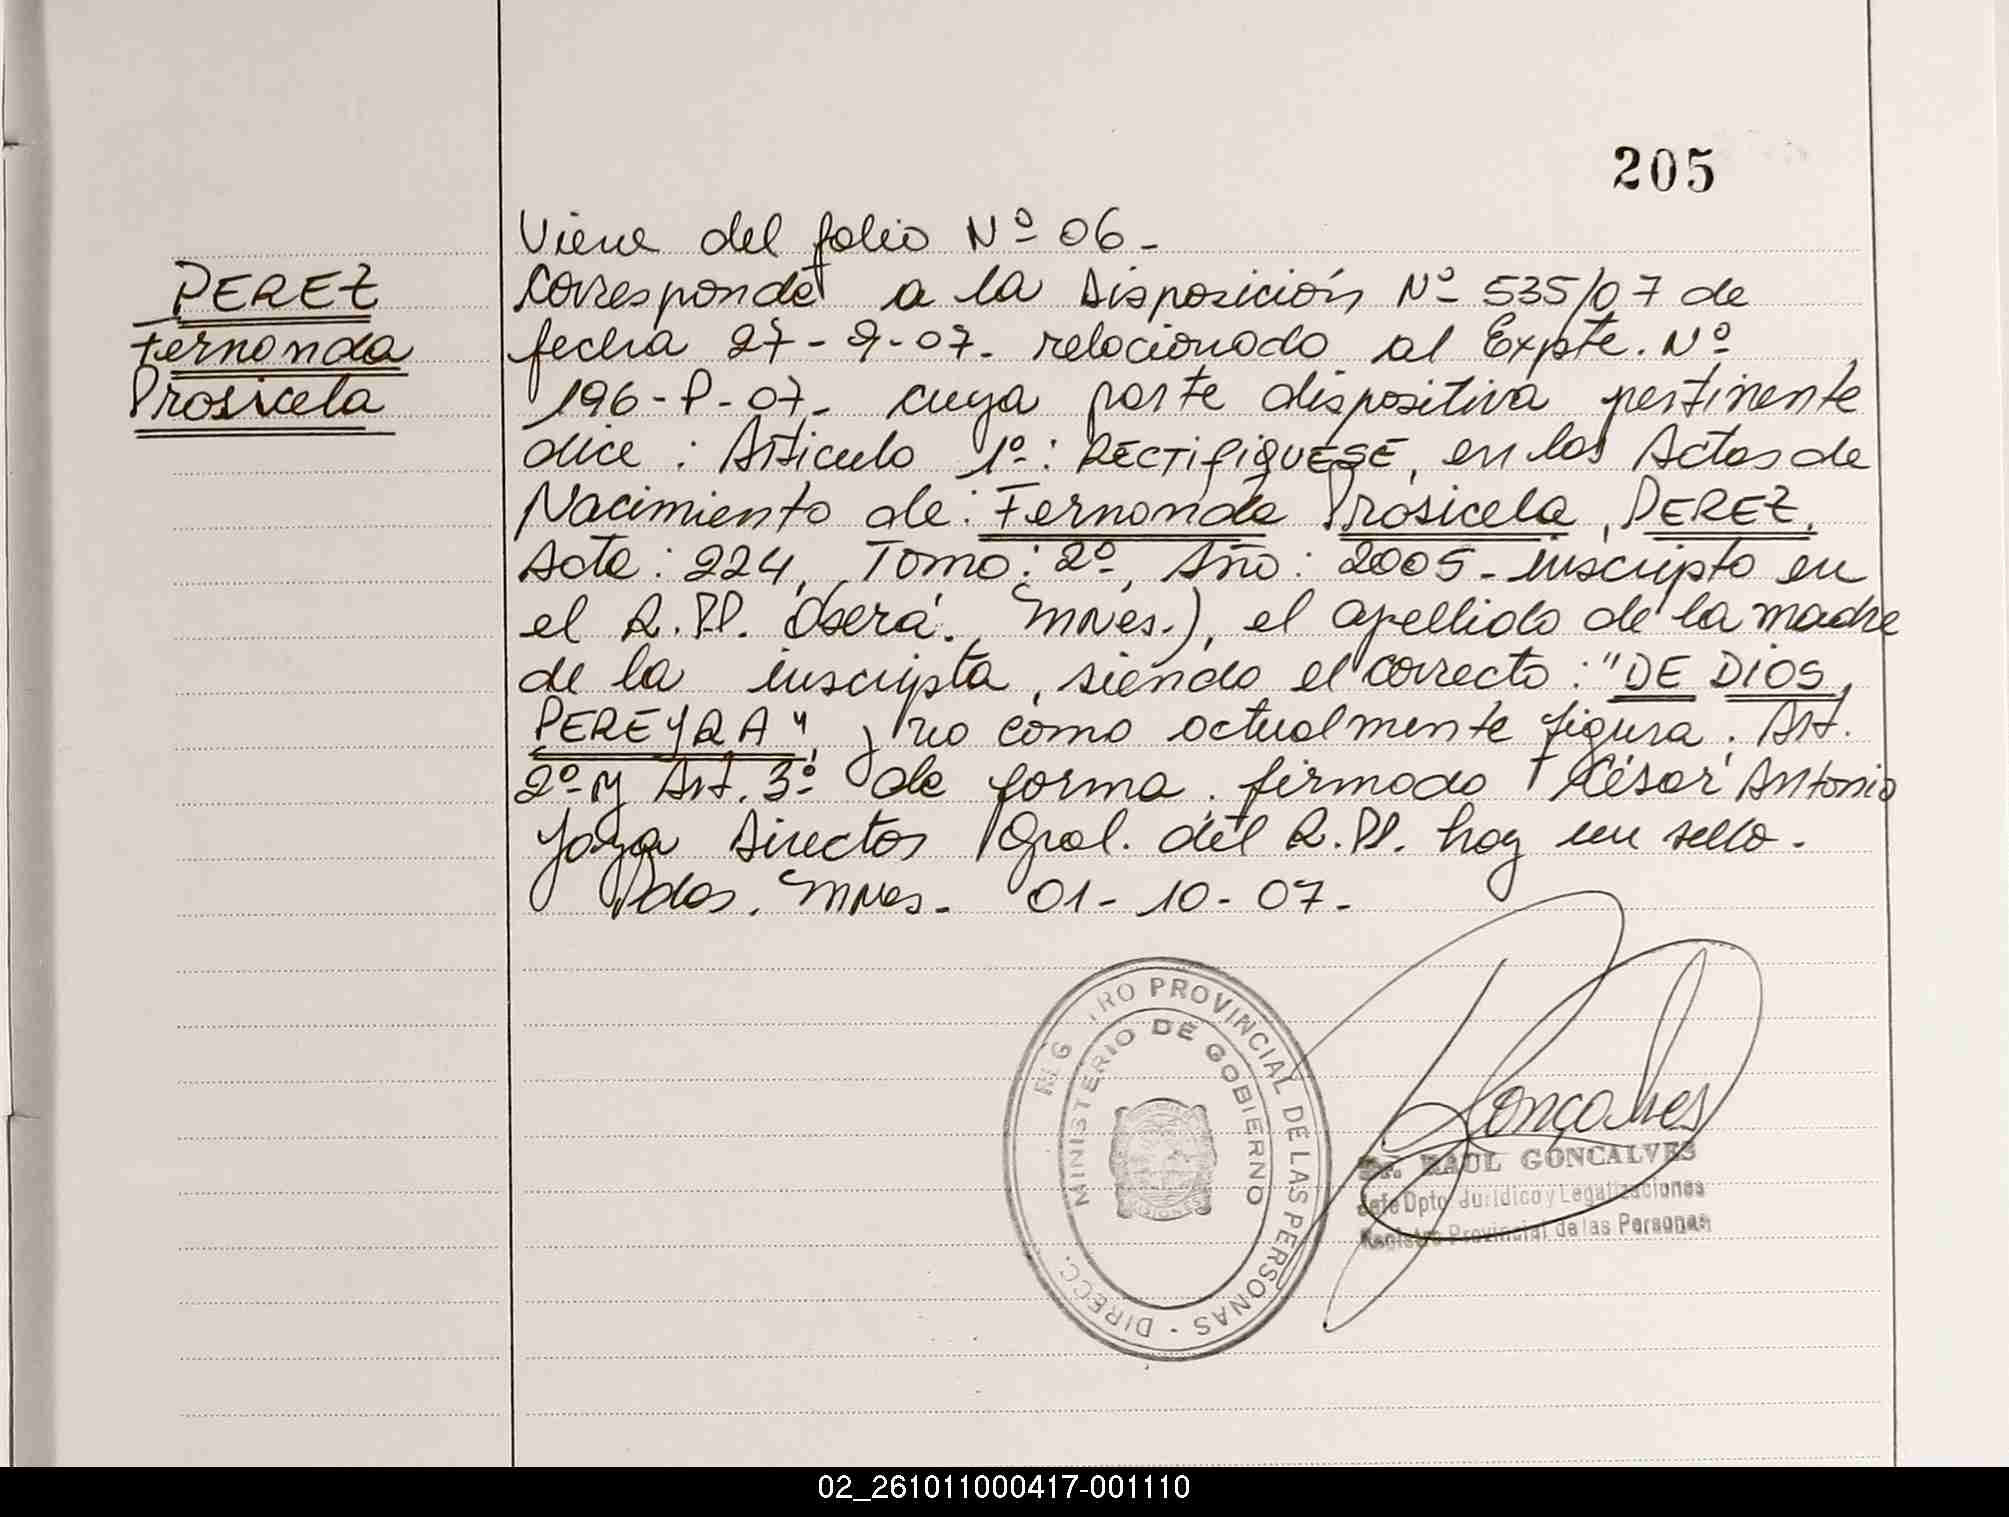 205
Viene del folio Nº 06-
PEREZ
Fernanda
Prosicela
Corresponde a la Disposición Nº 535/07 de
fecha 27-9-07- relacionado al Expte. Nº
196-P-07- cuya parte dispositiva pertinente
dice: Articulo 1º: RECTIFIQUESE, en las Actas de
Nacimiento de: Fernanda Prosicela, PEREZ,
Acta: 224, Tomo: 2º, Año: 2005- inscripto en
el R.PP. Oberá, Mnes.), el apellido de la madre
de la inscripta, siendo el correcto: "DE DIOS
PEREYRA", y no como actualmente figura. Art.
2º y Art. 3º de forma. firmado César Antonio
Director Gral. del R.PP. hay un sello.
Pdas. Mnes. 01-10-07-
REG RO PROVINCIAL DE LAS PERSONAS - DIRECC.
MINISTERIO DE GOBIERNO
Gonçalves
Dr. RAUL GONCALVES
Jefe Dpto. Jurídico y Legalizaciones
Registro Provincial de las Personas
02_261011000417-001110